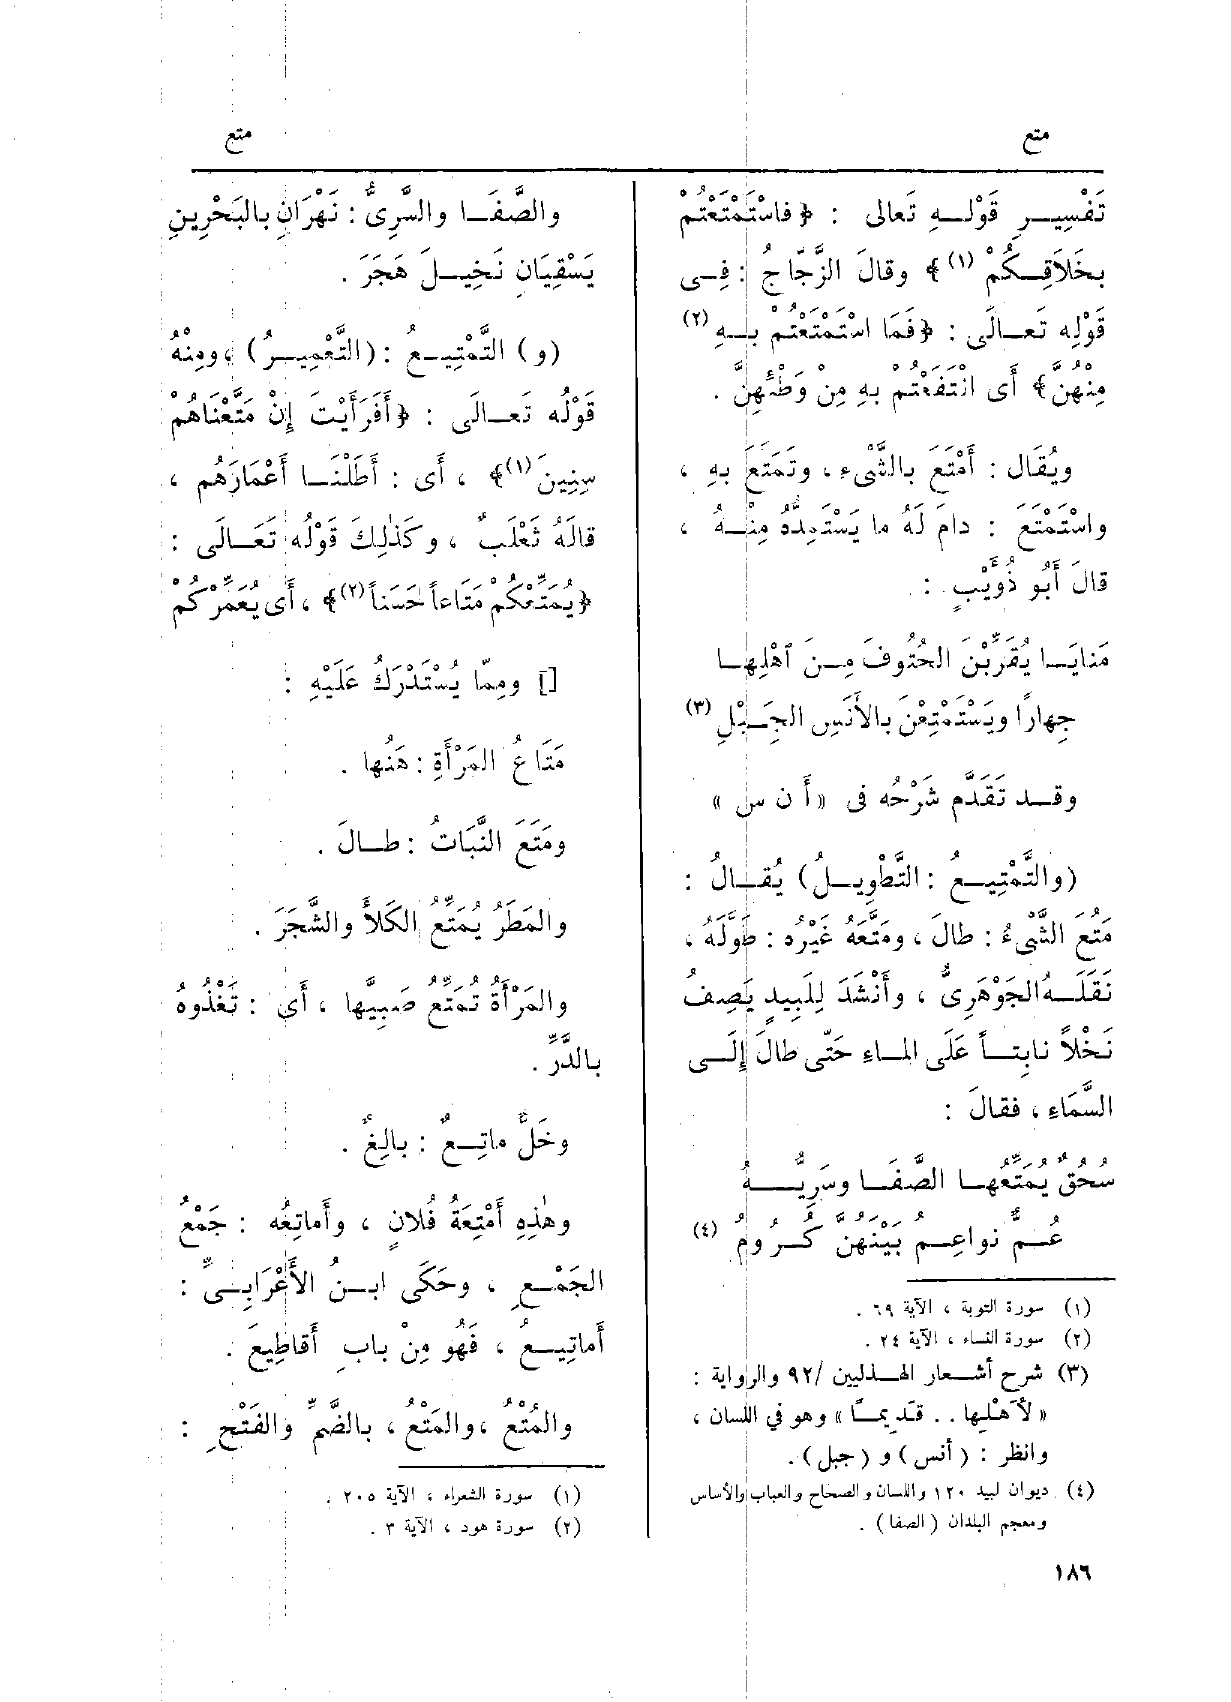 متع
متع
تَفْسِيرِ قَوْلِهِ تَعالى : ﴿فاسْتَمْتَعْتُمْ
بخَلَاقِكُمْ (١)﴾ وقالَ الزَّجّاجُ : فِى
قَوْلِه تَعالَى : ﴿فَمَا اسْتَمْتَعْتُم بِهِ (٢)
مِنْهُنَّ﴾ أَى انْتَفَعْتُمْ بِهِ مِنْ وَطْئِهِنَّ .
ويُقَال : أَمْتَعَ بالشَّىءِ ، وتَمَتعَ بهِ ،
واسْتَمْتَعَ : دامَ لَهُ ما يَسْتَمِدُّه مِنْهُ ،
قالَ أَبُو ذُؤَيْبٍ :
مَنايَا يُقَرِّبْنَ الحُتُوفَ مِنَ آهْلِهِا
جِهارًا ويَسْتَمْتِعْنَ بالأَنَسِ الجِبْلِ (٣)
وقد تَقَدَّم شَرْحُه فى «أ ن س»
(والتَّمْتِيعُ : التَّطْوِيلُ) يُقالُ :
مَتُعَ الشَّىءُ : طالَ ، ومَتَّعَهُ غَيْرُه : طَوَّلَهُ ،
نَقَلَهُ الجَوْهَرِىُّ ، وأَنْشَدَ لِلَبِيدٍ يَصِفُ
نَخْلاً نابِتاً عَلَى الماءِ حَتّى طالَ إِلَى
السَّمَاءِ ، فقالَ :
سُحُقٌ يُمَتِّعُها الصَّفَا وسَرِيُّهُ
عُمٌّ نَواعِمُ بَيْنَهُنَّ كُرُومُ (٤)
(١) سورة التوبة ، الآية ٦٩ .
(٢) سورة النساء ، الآية ٢٤ .
(٣) شرح أشعار الهذليين /٩٢ والرواية :
«لأَهْلِها .. قَدِيمًا» وهو في اللسان ،
وانظر : (أنس) و (جبل) .
(٤) ديوان لبيد ١٢٠ واللسان والصحاح والعباب والأساس
ومعجم البلدان (الصفا) .
والصَّفَا والسَّرِىُّ : نَهْرَانِ بالبَحْرِينِ
يَسْقِيَانِ نَخِيلَ هَجَرَ .
(و) التَّمْتِيعُ : (التَّعْمِيرُ) ، ومِنْهُ
قَوْلُه تَعالَى : ﴿أَفَرَأَيْتَ إِنْ مَتَّعْنَاهُمْ
سِنِينَ (١)﴾ ، أَى : أَطَلْنَا أَعْمَارَهُم ،
قالَهُ ثَعْلَبٌ ، وكَذٰلِكَ قَوْلُه تَعَالَى :
﴿يُمَتِّعْكُمْ مَتَاعاً حَسَناً (٢)﴾ ، أَى يُعَمِّرْكُمْ
[] ومِمّا يُسْتَدْرَكُ عَلَيْهِ :
مَتَاعُ المَرْأَةِ : هَنُها .
ومَتَعَ النَّبَاتُ : طالَ .
والمَطَرُ يُمَتِّعُ الكَلأَ والشَّجَرَ .
والمَرْأَةُ تُمَتِّعُ صَبِيَّها ، أَى : تَغْذُوهُ
بالدَّرِّ .
وخَلٌّ ماتِعٌ : بالِغٌ .
وهٰذِهِ أَمْتِعَةُ فُلانٍ ، وأَماتِعُه : جَمْعُ
الجَمْعِ ، وحَكَى ابنُ الأَعْرَابِىِّ :
أَماتِيعُ ، فَهُو مِنْ بابِ أَقاطِيعَ .
والمُتْعُ ، والمَتْعُ ، بالضَّمِّ والفَتْحِ :
(١) سورة الشعراء ، الآية ٢٠٥ .
(٢) سورة هود ، الآية ٣ .
١٨٦